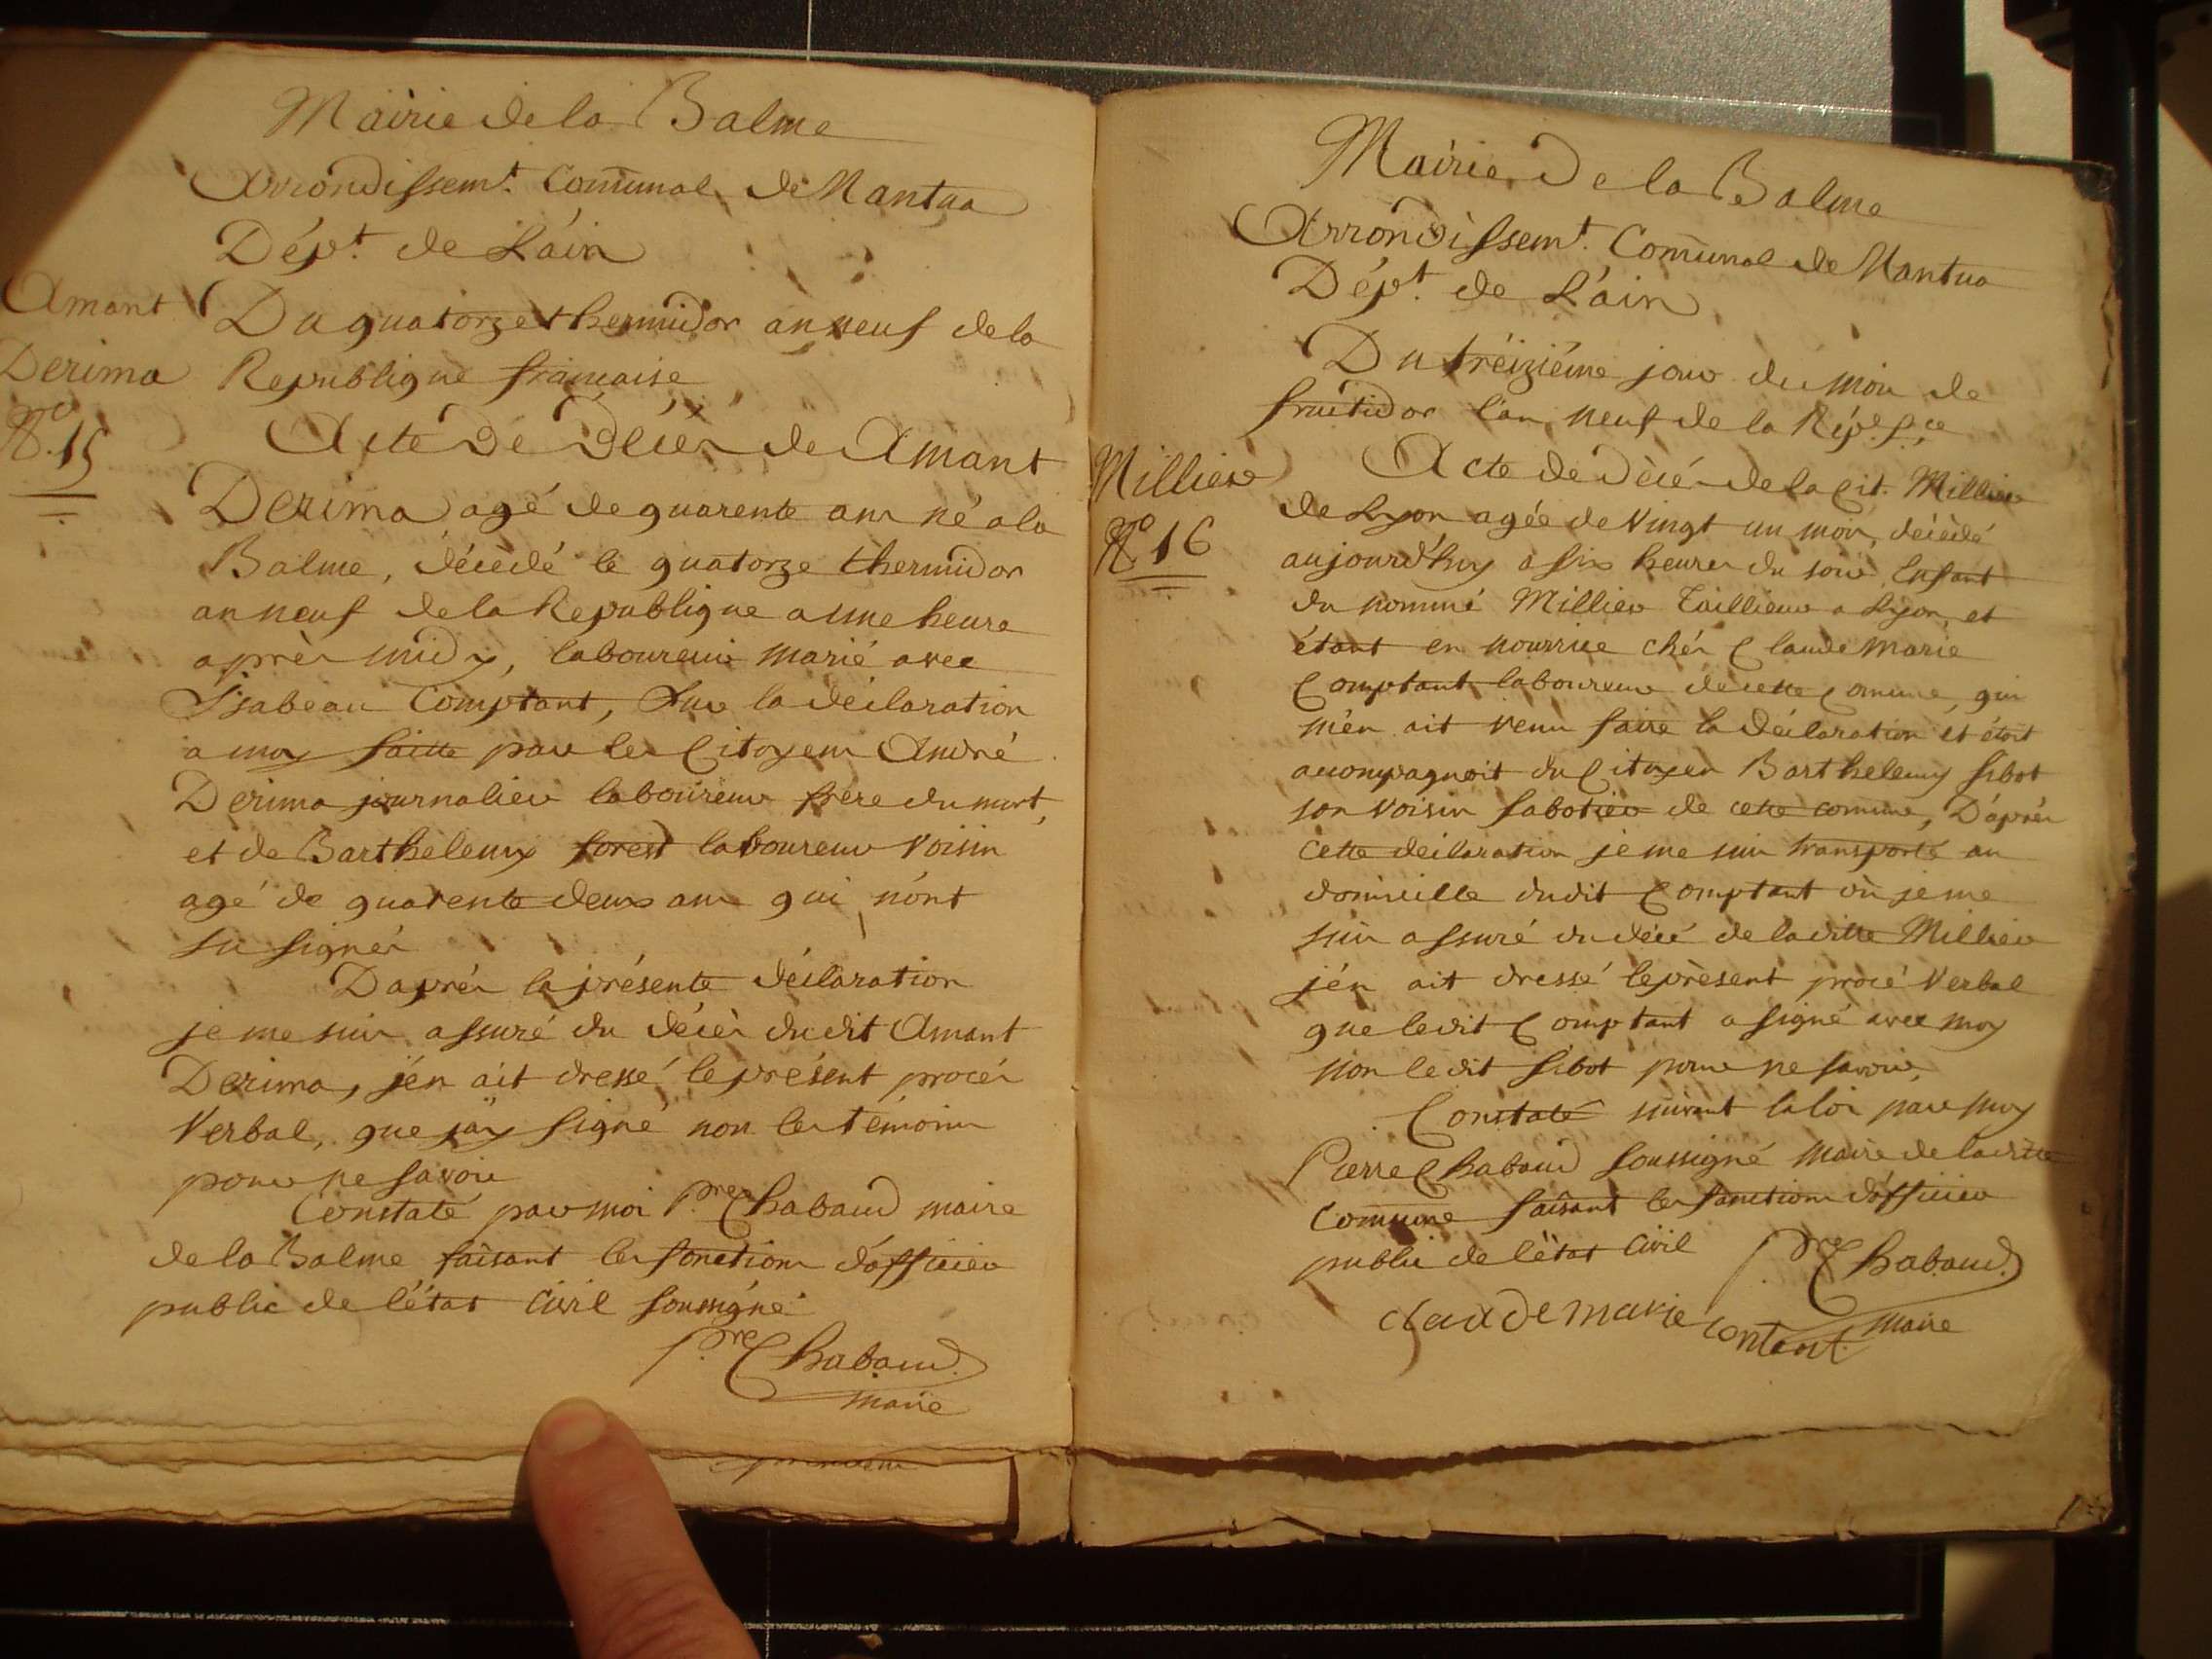 Mairie de la Balme
Arrondissemt. Comunal de Nantua
Dépt. de L'áin
Amant
Derima
No. 15
Du quatorze thermidor an neuf de la
Republique francaise
Acte De Décès de Amant
Derima agé de quarente ans né a la
Balme, décèdé le quatorze thermidor
an neuf de la Republique a une heure
après midy, laboureur marié avec
Isabeau Comptant, Sur la déclaration
a moy faitte par les Citoyens André
Derima journalier laboureur frère du mort,
et de Barthelemy forest laboureur voisin
agé de quarente deux ans qui n'ont
su signér
Daprés la présente déclaration
je me suis assuré du décès du dit Amant
Derima, j'én ait dressé le présent procés
Verbal, que jäy signé non les témoins
pour ne savoir
Constaté par moi Pre Chabaud maire
de la Balme faisant les fonctions d'officier
public de l'état Civil soussigné
Pre Chabaud.
maire
Mairie De la Balme
Arrondissemt. Comunal de Nantua
Dépt. de L'áin
Du tréiziéme jour du mois de
fructidor l'an neuf de la Répe. fce
Millier
No 16
Acte de décès de la Cit. Millier
de Lyon agée de vingt un mois, décèdé
aujourd'huy a six heures du soir, Enfant
du nommé Millier Taillieur a Lyon, et
étant en nourrice chés Claude Marie
Comptant laboureur de cette Comune, qui
m'en ait venu faire la déclaration et étoit
accompagnoit du Citoyen Barthelemy Sibot
son voisin sabotier de cette comune, D'aprés
cette déclaration je me suis transporté au
domicille dudit Comptant où je me
suis assuré du décé de laditte Millier
j'én ait dressé le présent procé Verbal
que ledit Comptant a signé avec moy
non ledit Sibot pour ne savoir,
Constaté suivant la loi par moy
Pierre Chabaud soussigné maire de laditte
Commune faisant les fonctions d'officier
public de l'ètat Civil
Pre Chabaud.
maire
claude marie contant